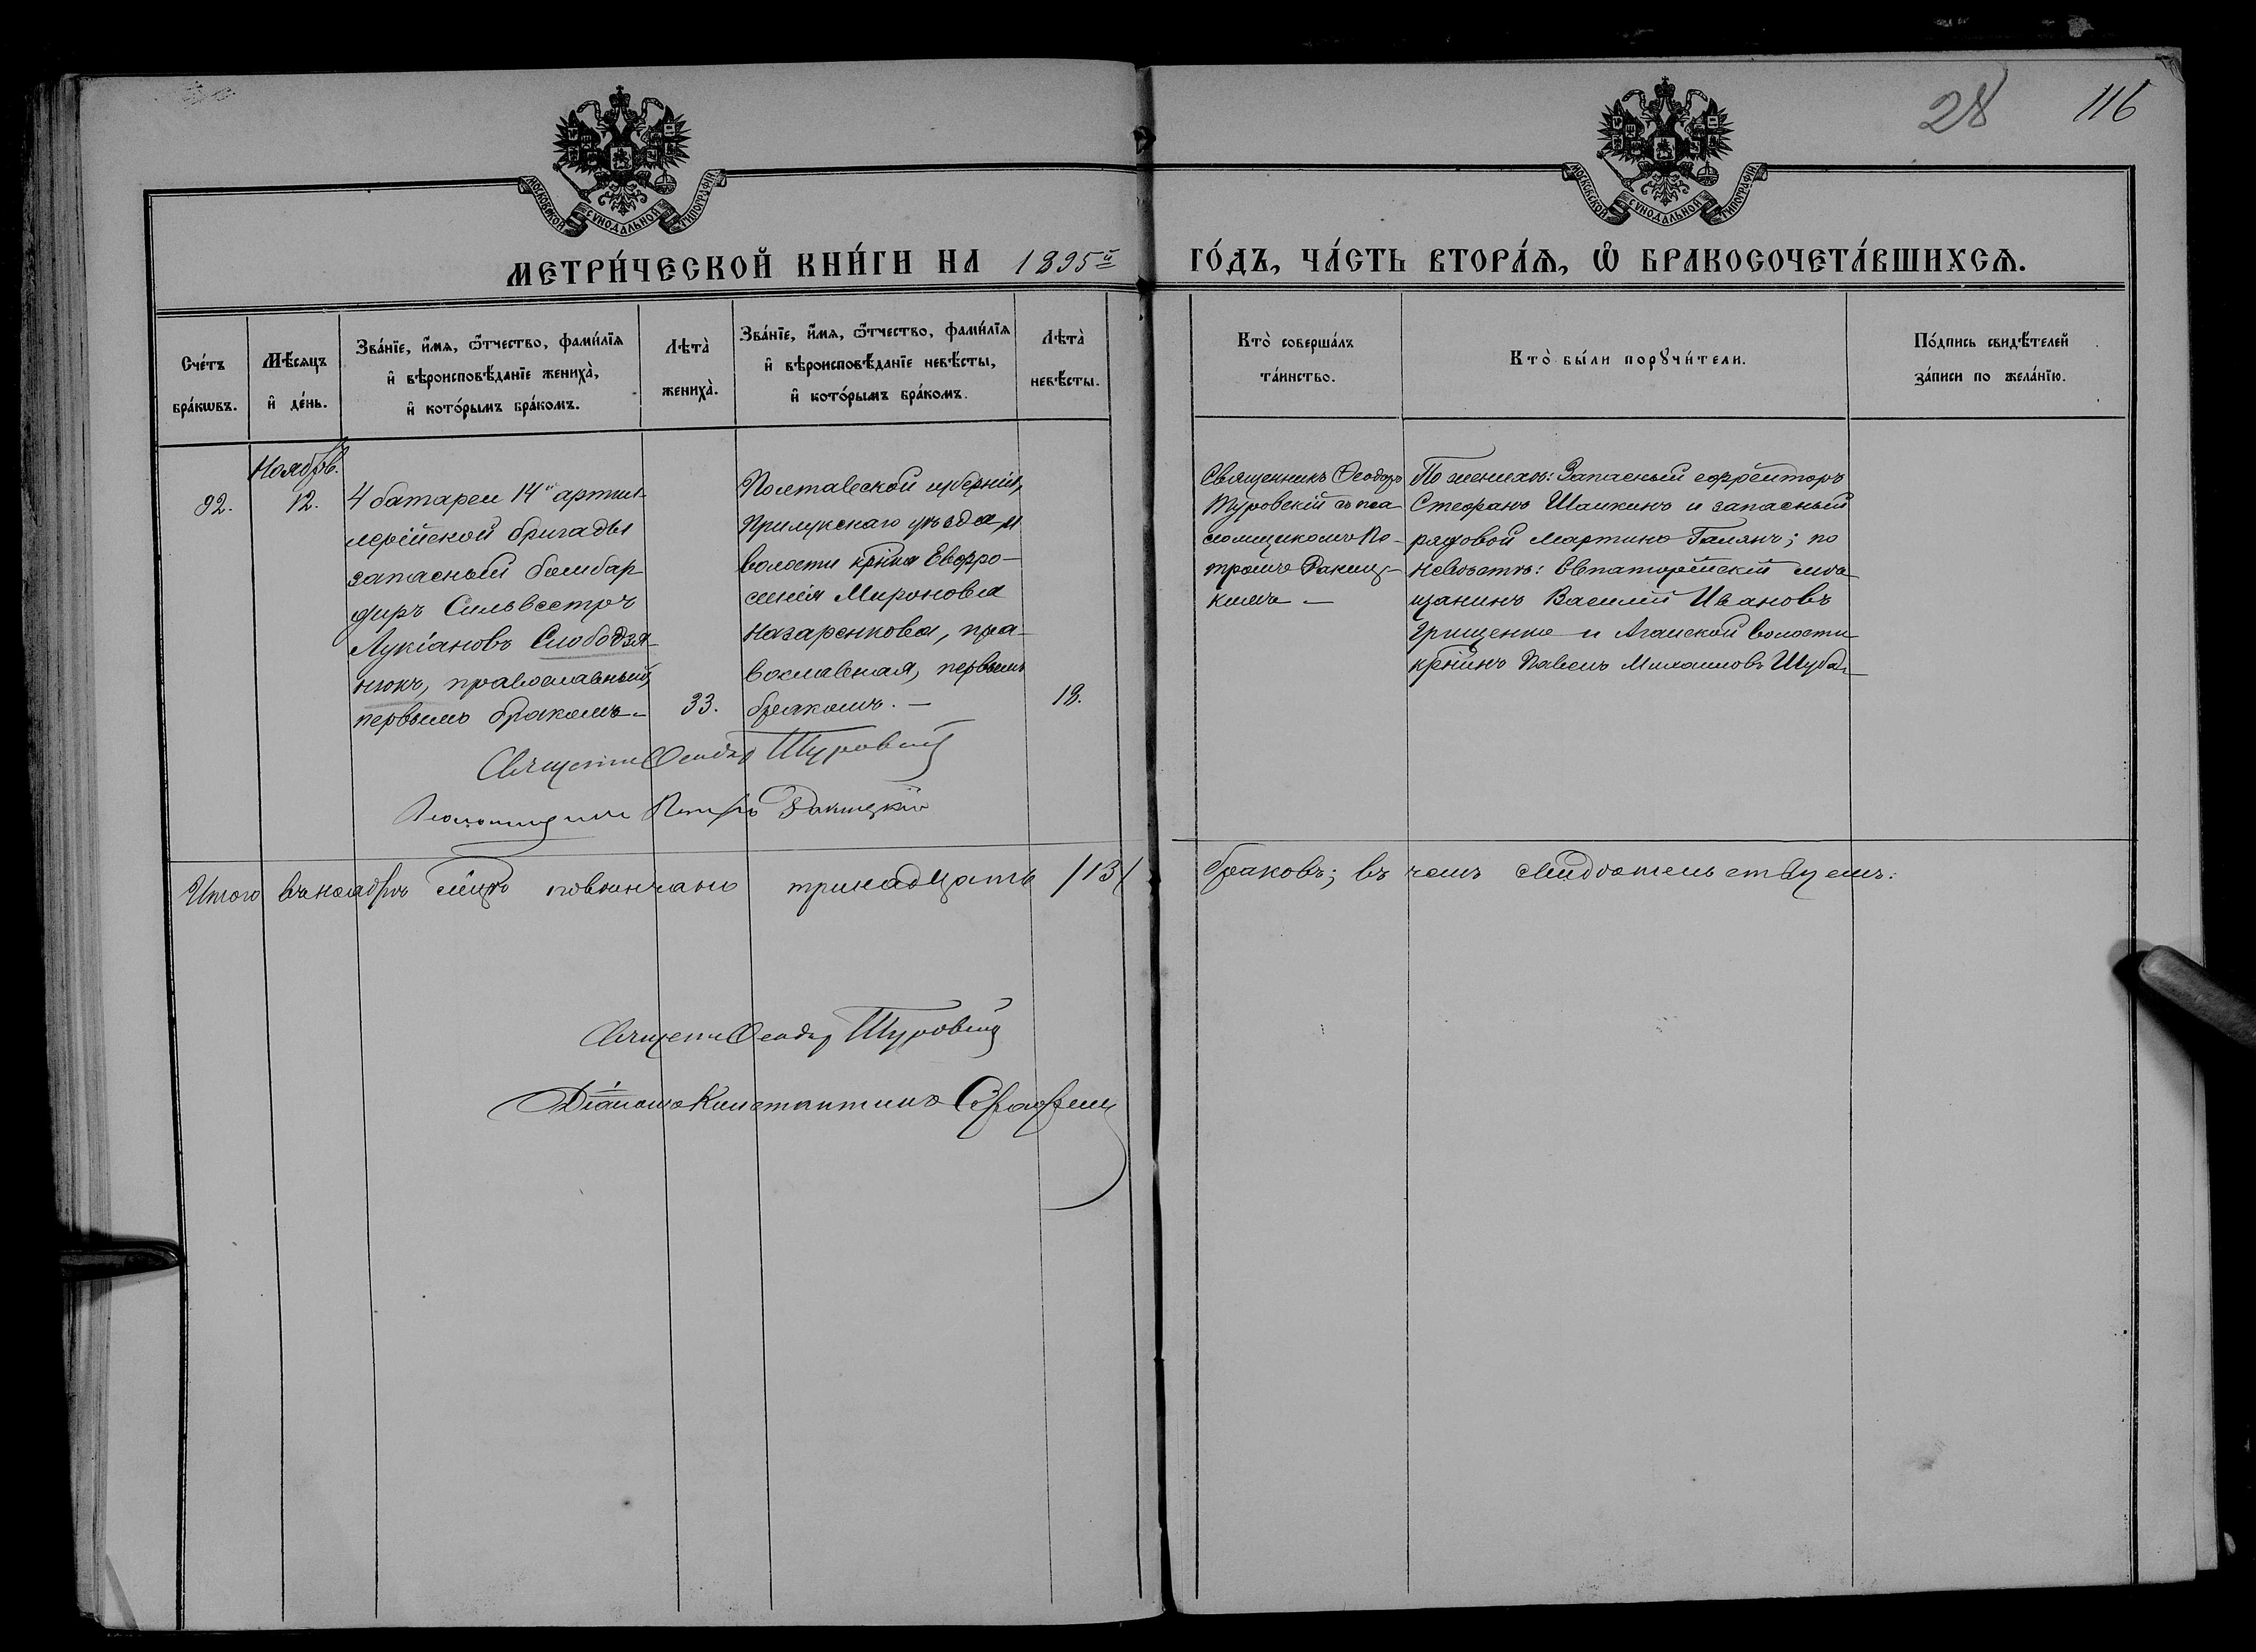 28 116
МОСКОВСКОЙ СѴНОДАЛЬНОЙ ТИПОГРАФІИ
МОСКОВСКОЙ СѴНОДАЛЬНОЙ ТИПОГРАФІИ
МЕТРИ́ЧЕСКОЙ КНИ́ГИ НА 1895й ГО́ДЪ, ЧА́СТЬ ВТОРА́Ѧ, Ѡ҆ БРАКОСОЧЕТА́ВШИХСѦ.
Сче́тъ
бра́кѡвъ.
Мѣ́сяцъ
и҆ де́нь.
Зва́нїе, и҆́мѧ, ѻ҆́тчество, фами́лїѧ
и҆ вѣроисповѣ́данїе жениха̀,
и҆ кото́рымъ бра́комъ.
Лѣта̀
жениха̀.
Зва́нїе, и҆́мѧ, ѻ҆́тчество, фами́лїѧ
и҆ вѣроисповѣ́данїе невѣ́сты,
и҆ кото́рымъ бра́комъ.
Лѣта̀
невѣ́сты.
Кто̀ соверша́лъ
та́инство.
Кто̀ бы́ли порꙋчи́тели.
По́дпись свидѣ́телей
за́писи по жела́нїю.
92.
Ноябрь.
12.
4 батареи 14й артил-
лерійской бригады
запасный бомбар-
диръ Сильвестръ
Лукіановъ Слободзя-
нюкъ, православный,
первымъ бракомъ.-
33.
Полтавской губерніи,
Прилукскаго уѣзда и
волости крѣнка Евфро-
синія Миронова
Назаренкова, пра-
вославная, первымъ
бракомъ. —
18.
Священникъ Ѳеодоръ
Туровскій съ пса-
ломщикомъ Пе-
тромъ Ракиц-
кимъ —
По женихѣ: Запасный ефрейторъ
Стефанъ Шапкинъ и запасный
рядовой Мартинъ Галянъ; по
невѣстѣ: Евпаторійскій мѣ-
щанинъ Василій Ивановъ
Грищенко и Агайской волости
крѣнинъ Павелъ Михаиловъ
Священникъ Ѳеодоръ Туровскій
Псаломщикъ Петръ Ракицкій
Итого въ ноябрѣ мѣцѣ повѣнчано тринадцать /13/ браковъ; въ чемъ свидѣтельствуемъ:
Священникъ Ѳеодоръ Туровскій
Діаконъ Константинъ